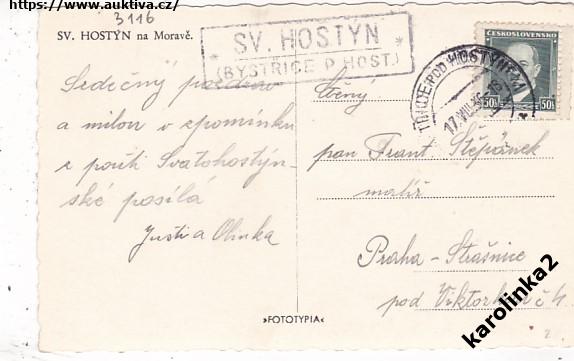 https://www.auktiva.cz/
3116
SV. HOSTÝN na Moravě.
* SV. HOSTÝN *
(BYSTŘICE P. HOST.)
ČESKOSLOVENSKO
50h 50h
POD HOSTÝNEM
17 VIII
Srdečný pozdrav
a milou v zpomínku
z pouti Svatohostýn-
ské posílá
Justi a Olinka
Ctěný
pan Frant Štěpánek
malíř
Praha - Strašnice
pod Viktorkou č 4.
»FOTOTYPIA«
karolinka2